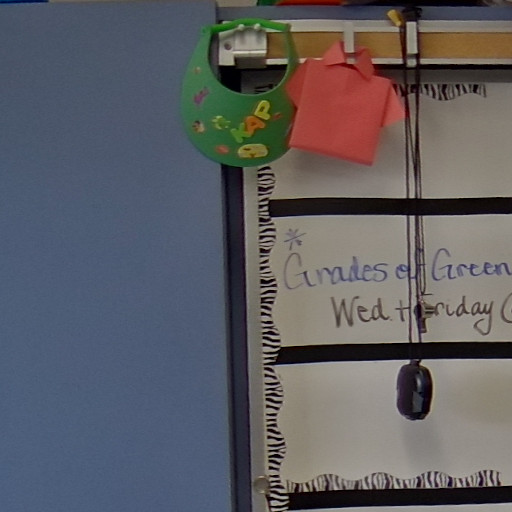 KAP
*
Grades of Green
Wed. + Friday